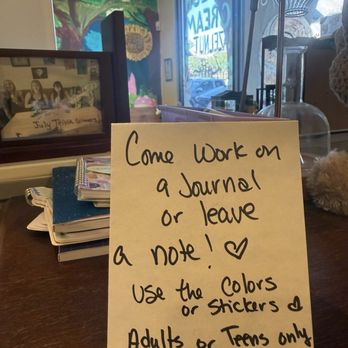 CREAM
HAZELNUT
July Trivia Winners
Come Work on
a Journal
or leave
a note! ♡
Use the Colors
or Stickers ♡
Adults or Teens only